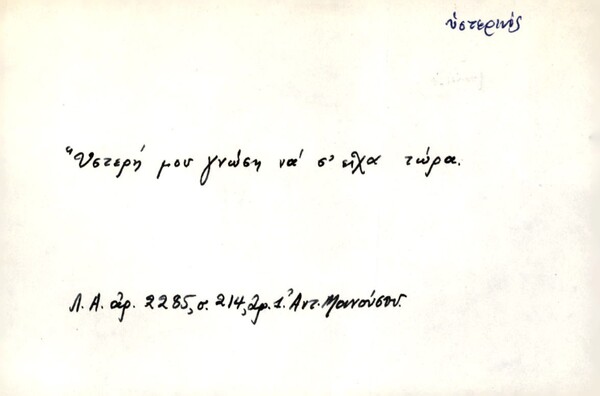 ὑστερινός
Ὕστερή μου γνώση νά σ' εἶχα τώρα.
Λ. Α. ἀρ. 2285, σ. 214, ἀρ. 1. Ἀντ. Μανούσου.